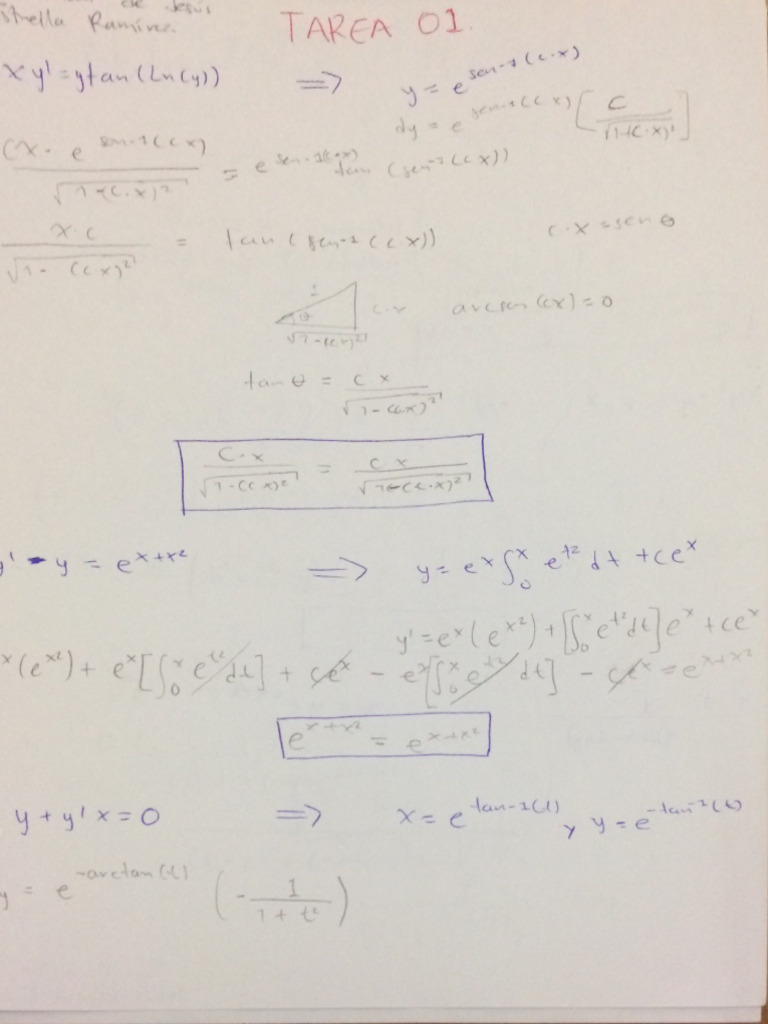 de Jesús
strella Ramírez.
TAREA 01.
xy' = ytan(Ln(y)) ⟹ y = e^{sen-1(c·x)}
dy = e^{sen-1(cx)} [ C / √(1-(c·x)²) ]
(x· e^{sen-1(cx)} / √(1-(c·x)²) = e^{sen-1(c·x)} tan (sen^{-1}(cx))
x·c / √(1-(cx)²) = tan(sen-1(cx)) c·x = sen θ
1 θ c·x √(1-(cx)²) arcsen(cx) = θ
tan θ = cx / √(1-(cx)²)
C·x / √(1-(cx)²) = cx / √(1-(c·x)²)
y' - y = e^{x+x²} ⟹ y = e^x ∫₀^x e^{t²} dt + ce^x
y' = e^x(e^{x²}) + [∫₀^x e^{t²} dt] e^x + ce^x
x(e^{x²}) + e^x[∫₀^x e^{t²} dt] + ce^x - e^x[∫₀^x e^{t²} dt] - ce^x = e^{x+x²}
e^{x+x²} = e^{x+x²}
y + y'x = 0 ⟹ x = e^{tan-1(t)} y y = e^{-tan-1(t)}
y = e^{-arctan(t)} (- 1 / 1 + t²)